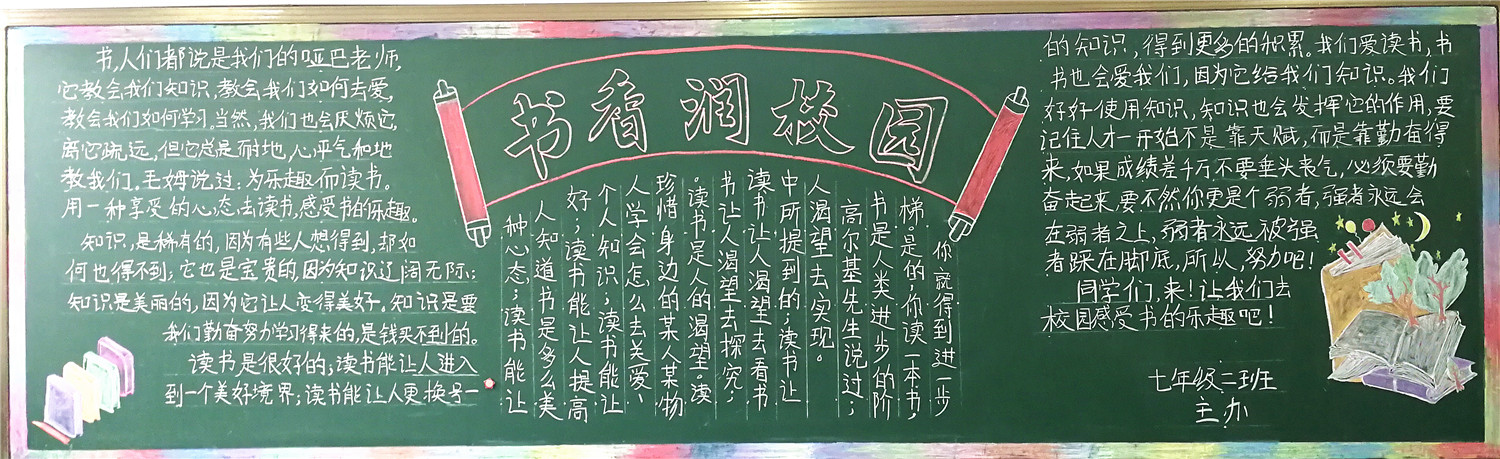 书香润校园
书,人们都说是我们的哑巴老师,
它教会我们知识,教会我们如何去爱,
教会我们如何学习。当然,我们也会厌烦它,
离它疏远,但它总是耐地,心平气和地
教我们。毛姆说过:为乐趣而读书。
用一种享受的心态去读书,感受书的乐趣。
知识,是稀有的,因为有些人想得到,却如
何也得不到;它也是宝贵的,因为知识辽阔无际;
知识是美丽的,因为它让人变得美好。知识是要
我们勤奋努力学习得来的,是钱买不到的。
读书是很好的;读书能让人进入
到一个美好境界;读书能让人更换号一
种心态;读书能让
人知道书是多么美
好;读书能让人提高
个人知识;读书能让
人学会怎么去关爱、
珍惜身边的某人某物
。读书是人的渴望。读
书让人渴望去探究;
读书让人渴望去看书
中所提到的;读书让
人渴望去实现。
高尔基先生说过;
书是人类进步的阶
梯。是的,你读一本书,
你就得到进一步
的知识,得到更多的积累。我们爱读书,书
书也会爱我们,因为它给我们知识。我们
好好使用知识,知识也会发挥它的作用,要
记住人才一开始不是靠天赋,而是靠勤奋得
来,如果成绩差千万不要垂头丧气,必须要勤
奋起来,要不然你更是个弱者,强者永远会
在弱者之上,弱者永远被强
者踩在脚底,所以,努力吧!
同学们,来!让我们去
校园感受书的乐趣吧!
七年级二班
主办